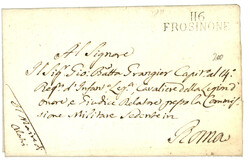 116
FROSINONE
Al Signore
Il Sig.r Gio: Batta Grangier Capit.o al 14.
Regg.to d'Infant.a Legg.a Cavaliere della Legion d'
onore, e Giudice Relatore presso la Commis
sione Militare Sedente in
Roma